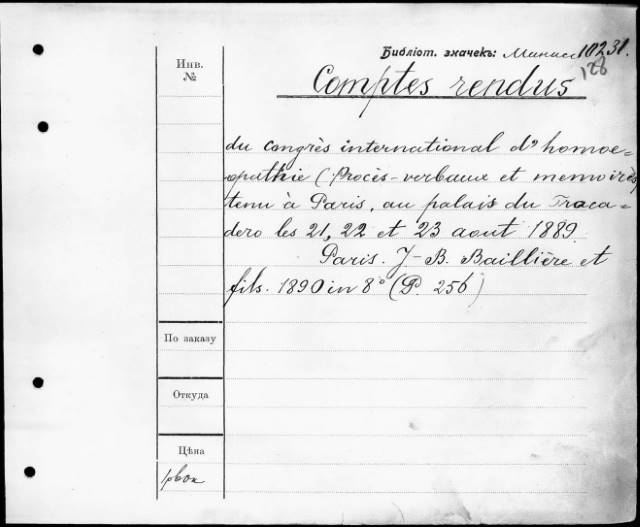 Библіот. значекъ: 10231.
128
Инв.
№
Comptes rendus
du congrès international d' homoe=
opathie (Procès-verbaux et memoires
tenu à Paris, au palais du Troca=
dero les 21, 22 et 23 aout 1889.
Paris. J-B. Baillière et
fils. 1890 in 8° (P. 256)
По заказу
Откуда
Цѣна